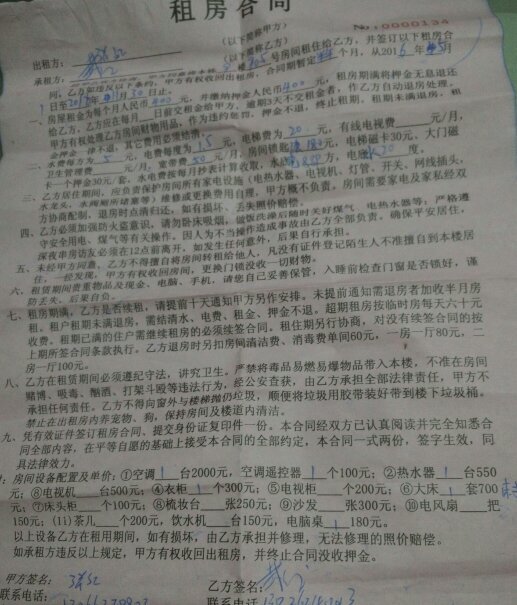 租房合同
(以下简称甲方)
No:0000134
出租方:
(以下简称乙方)
承租方:
号房间租住给乙方,并签订以下租房合
同,乙方如违反以下条约,甲方有权收回出租房,合同期暂定 个月,从2016年 月
日至201 年 月30日止。
一、房屋租金为每个月人民币400元,并缴纳押金人民币400元,租房期满将押金无息退还
给乙方,乙方应在每月 日前交租金给甲方,逾期3天不交租金者,作乙方自动退房处理,
甲方有权处理乙方房间财物用品,作为违约惩罚,押金不退,终止租期。租期未满退房,租
金押金一律不退,其它费用必须结清。
二、水费每方为5元,电费每度为1.5元,电梯费为20元,有线电视费 元/月,
卫生管理费 元/月,宽带费50元/月,房间锁匙 元,电梯磁卡30元,大门磁
卡一个押金30元/套,水电费按每月抄表计算收取,水底 方,电底 度。
三、乙方居住期间,应负责保护房间所有家电设施(电热水器、电视机、灯管、开关、网线插头、
水龙头,水阀厕所堵塞等)维修或更换费用自理,甲方概不负责。房间需要家电及家私经双
方协商配制、退房时点清归还,如有损坏、丢失照价赔偿。
四、乙方必须加强防火监意识,请勿卧床吸烟,做饭洗澡后随时关好煤气、电热水器等;严格遵
守安全用电、煤气等有关操作。因人为不当操作造成事故由乙方全部负责。确保平安居住,
深夜串房访友必须在12点前离开,如发生任何意外,后果自行承担。
五、未经甲方同意,乙方不得擅自将房间转租给他人,凡没有证件登记陌生人不准擅自到本楼居
住。一经发现,甲方有权收回房间,更换门锁没收一切财物。
六、租赁期间贵重物品及现金、电脑、手机,请您自己妥善保管,入睡前检查门窗是否锁好,谨
防丢失、后果自负。
七、租房期满,乙方是否续租,请提前十天通知甲方另作安排。未提前通知需退房者加收半月房
租。租户租期未满退房,需结清水、电费、租金、押金不退。超期租房按临时房每天六十元
收费。租期已满的住户需继续租房的必须续签合同。租住期另行协商,对没有续签合同的按
上期所签合同条款执行。乙方退房时另扣房间清洁费、消毒费单间60元,一房一厅80元,二
房一厅100元。
八、乙方在租赁期间必须遵纪守法,讲究卫生。严禁将毒品易燃易爆物品带入本楼,不准在房间
赌博、吸毒、酗酒、打架斗殴等违法行为,经公安查获,由乙方承担全部法律责任,甲方不
承担任何责任。乙方不得向窗外与楼梯抛扔垃圾,顺便将垃圾用胶带装好带到楼下垃圾桶。
禁止在出租房内养宠物、狗,保持房间及楼道内清洁。
九、凭有效证件签订租房合同、提交身份证复印件一份。本合同经双方已认真阅读并完全知悉合
同全部内容,在平等自愿的基础上接受本合同的全部约定,本合同一式两份,签字生效,同
具法律效力。
:房间设备配置及单价:①空调1台2000元,空调遥控器1个100元;②热水器1台550
元;③电视机 台500元;④衣柜1个300元;⑤电视柜 个200元;⑥大床1套700
元;⑦床头柜 个100元;⑧梳妆台 张250元;⑨沙发 张300元;⑩电风扇 把
150元;(11)茶几 个200元,饮水机 台150元,电脑桌1180元。
以上设备乙方在租用期间,如有损坏,由乙方承担并修理,无法修理的照价赔偿。
如承租方违反以上规定,甲方有权收回出租房,并终止合同没收押金。
甲方签名:
乙方签名:
联系电话
联系电话